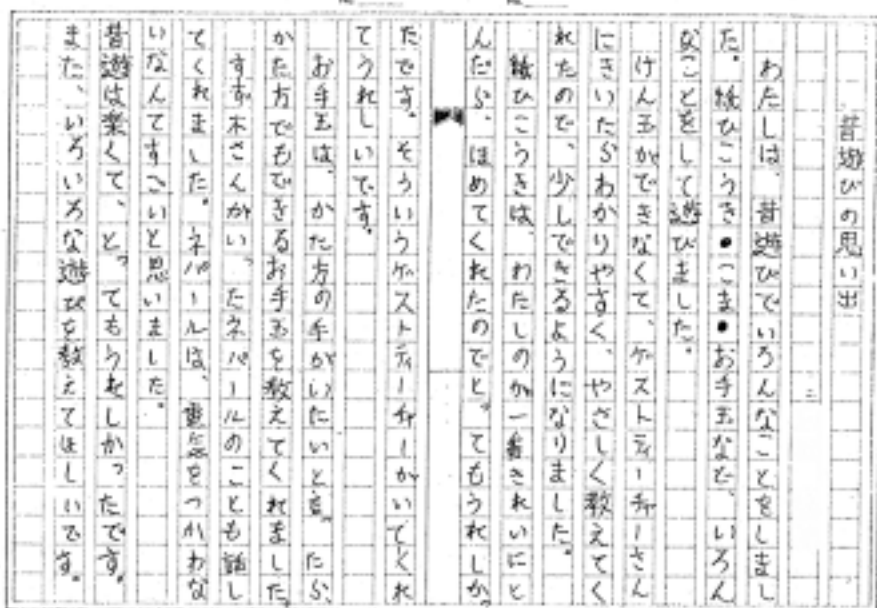 昔遊びの思い出
わたしは、昔遊びでいろんなことをしまし
た。紙ひこうき・こま・お手玉など、いろん
なことをして遊びました。
けん玉ができなくて、ゲストティーチャーさん
にきいたらわかりやすく、やさしく教えてく
れたので、少しできるようになりました。
紙ひこうきは、わたしのが一番きれいにと
んだら、ほめてくれたのでと、てもうれしか。
たです。そういうゲストティーチャーがいてくれ
てうれしいです。
お手玉は、かた方の手がいたいと言ったら、
かた方でもできるお手玉を教えてくれました。
すず木さんがい、たネパールのことも話し
てくれました。ネパールは、電気をつかわな
いなんてすごいと思いました。
昔遊は楽くて、と、てもうれしかったです。
また、いろいろな遊びを教えてほしいです。